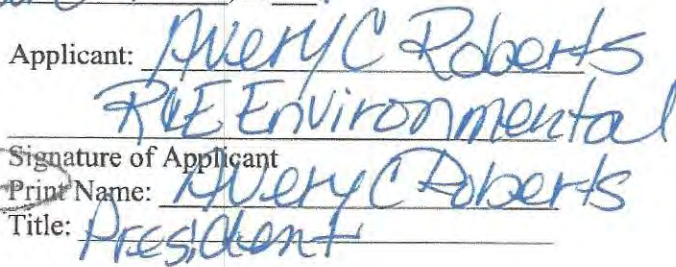 Applicant: Avery C Roberts
Environmental
Signature of Applicant
Print Name: Avery C Roberts
Title: President